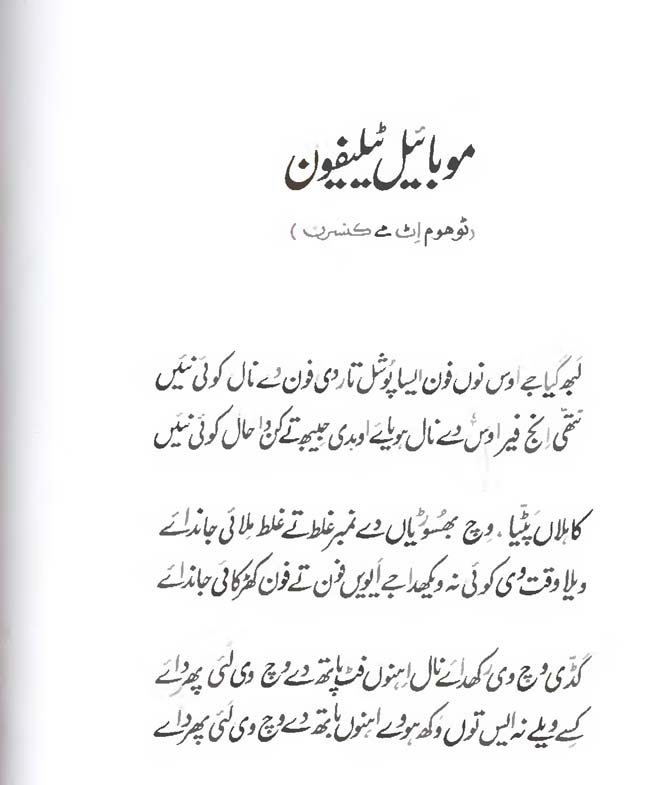 موبائیل ٹیلیفون
(ٹو ہوم اِٹ مے کنسرن)
لَبھ گیا جے اوس نوں فون ایسا پوُشل تار دی فون دے نال کوئی نئیں
نتھّی اِنج فیر اوس دے نال ہویا اے اوہدی جیبھ تے کن دا حال کوئی نئیں
کاہلاں پَٹّیا، وِچ بھسُوڑیاں دے نمبر غلط تے غلط مِلائی جاندا اے
ویلا وقت وی کوئی نہ ویکھدا جے اَیویں فون تے فون کھڑکائی جاندا اے
گڈّی وچ وی رکھدا اے نال اِہنوں فٹ پاتھ دے وچ وی لئی پھردا اے
کِسے ویلے نہ ایس توں وَکھ ہووے اہنوں باتھ دے وچ وی لَئی پھردا اے